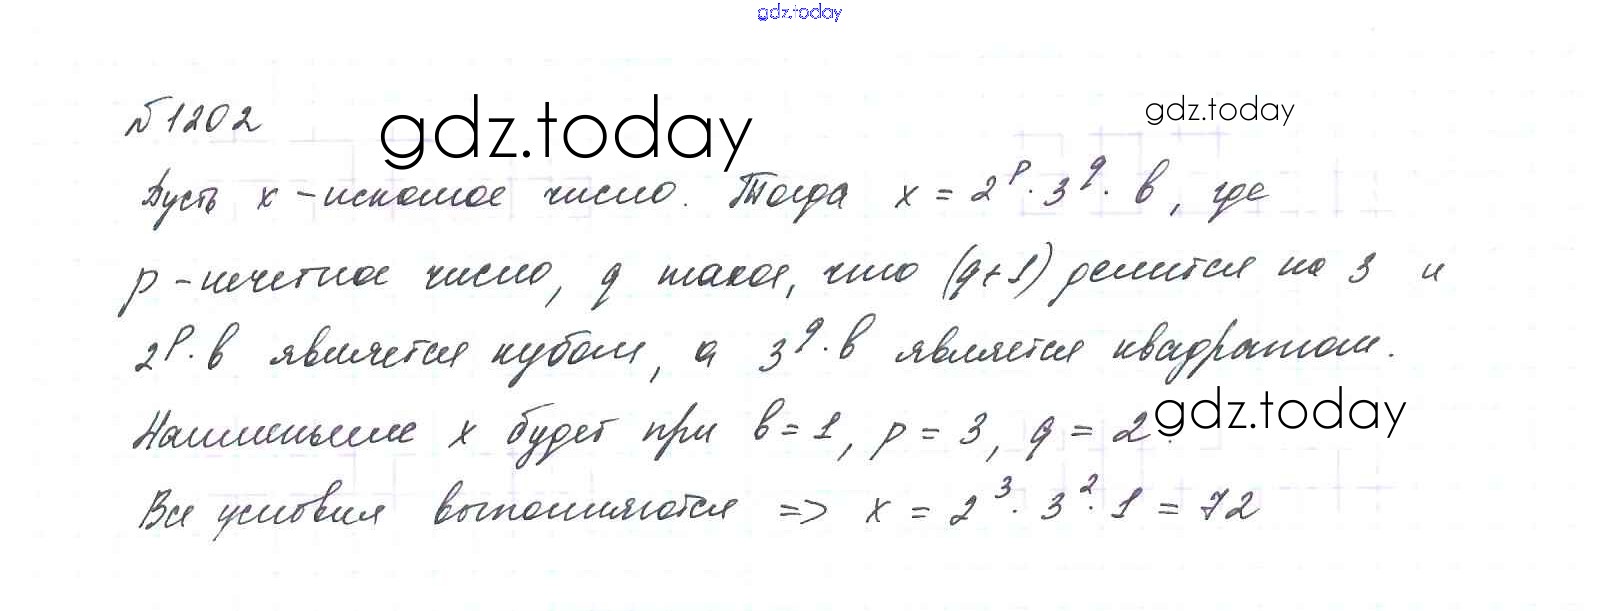 gdz.today
№1202
gdz.today
gdz.today
Пусть x – искомое число. Тогда x = 2^p · 3^q · b, где
p – нечетное число, q такое, что (q+1) делится на 3 и
2^p · b является кубом, а 3^q · b является квадратом.
gdz.today
Наименьшее x будет при b = 1, p = 3, q = 2.
Все условия выполняются => x = 2^3 · 3^2 · 1 = 72